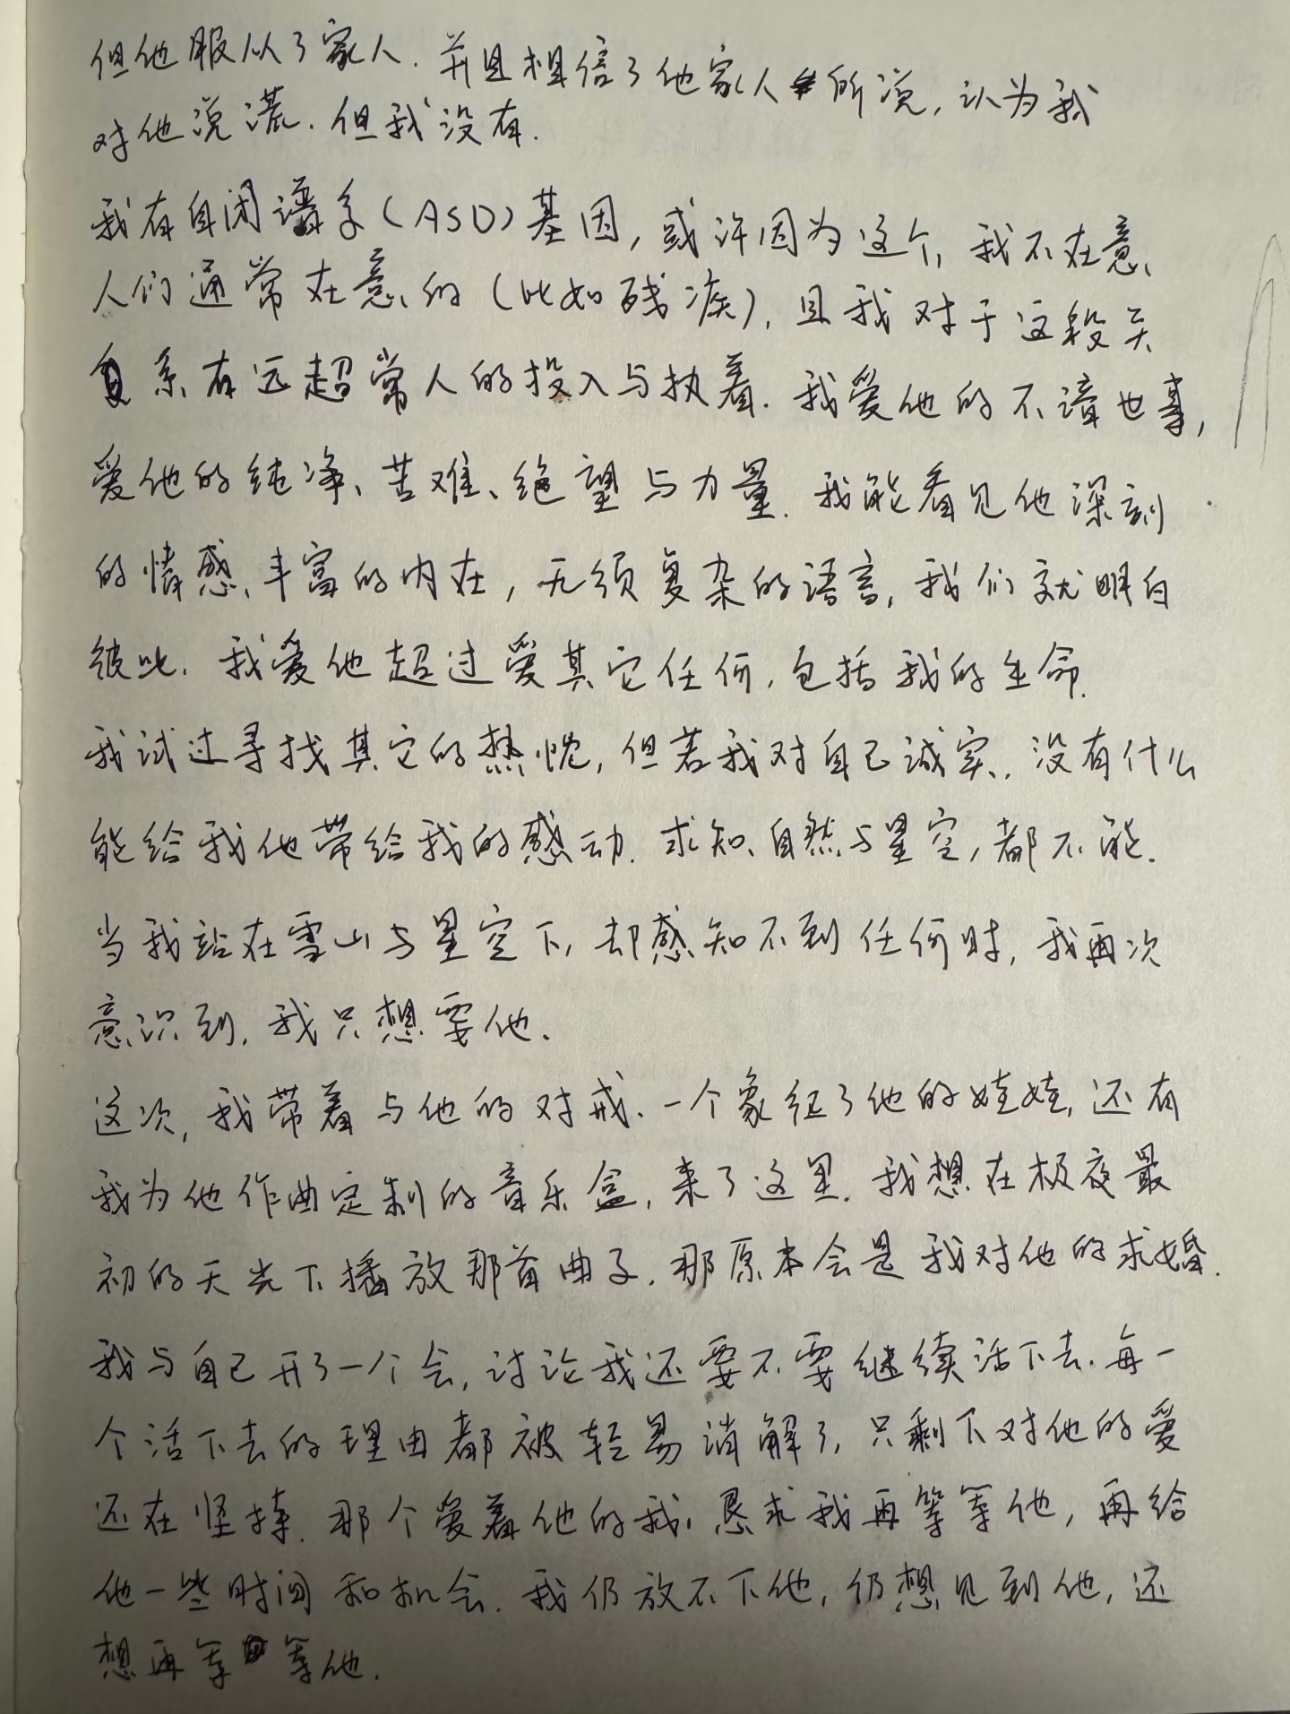 但他服从了家人. 并且相信了他家人所说, 认为我
对他说谎. 但我没有.
我有自闭谱系(ASD)基因, 或许因为这个, 我不在意
人们通常在意的 (比如残疾), 且我对于这段关
系有远超常人的投入与执着. 我爱他的不谙世事,
爱他的纯净、苦难、绝望与力量. 我能看见他深刻
的情感、丰富的内在, 无须复杂的语言, 我们就明白
彼此. 我爱他超过爱其它任何, 包括我的生命.
我试过寻找其它的热忱, 但若我对自己诚实, 没有什么
能给我他带给我的感动. 求知、自然与星空, 都不能.
当我站在雪山与星空下, 却感知不到任何时, 我再次
意识到, 我只想要他.
这次, 我带着与他的对戒、一个象征了他的娃娃, 还有
我为他作曲定制的音乐盒, 来了这里. 我想在极夜最
初的天光下播放那首曲子. 那原本会是我对他的求婚.
我与自己开了一个会, 讨论我还要不要继续活下去. 每一
个活下去的理由都被轻易消解了, 只剩下对他的爱
还在坚持. 那个爱着他的我, 恳求我再等等他, 再给
他一些时间和机会. 我仍放不下他, 仍想见到他, 还
想再等等他.